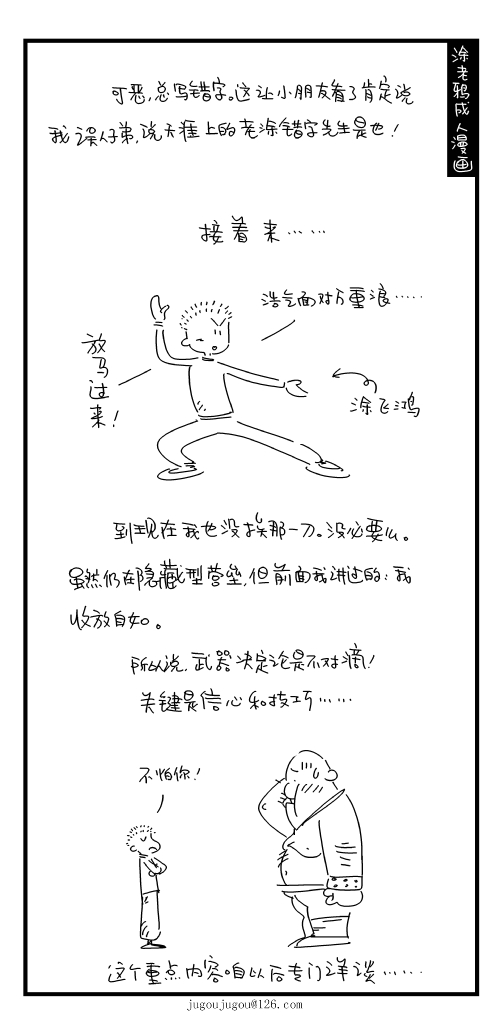 涂老鸦成人漫画
可恶，总写错字。这让小朋友看了肯定说
我误人子弟，说天涯上的老涂错字先生是也！
接着来……
浩气面对万重浪……
放马过来！
涂飞鸿
到现在我也没挨那一刀。没必要么。
虽然仍在隐藏型营垒，但前面我讲过的：我
收放自如。
所以说，武器决定论是不对滴！
关键是信心和技巧……
不怕你！
这个重点内容咱以后专门详谈……
jugoujugou@126.com